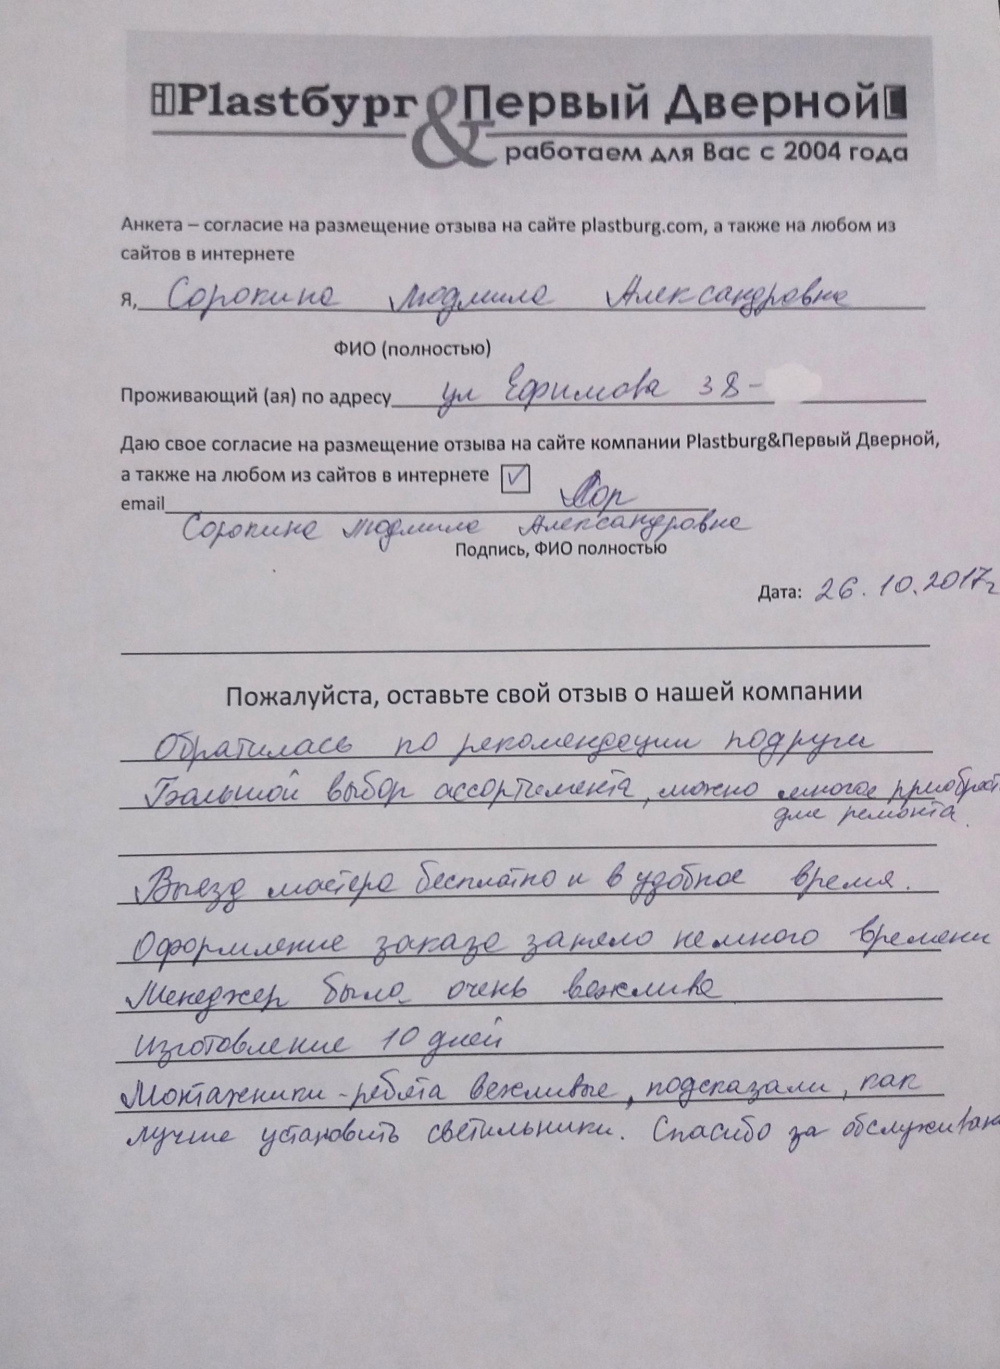 Plastбург & Первый Дверной
работаем для Вас с 2004 года
Анкета – согласие на размещение отзыва на сайте plastburg.com, а также на любом из
сайтов в интернете
Я, Сорокина Людмила Александровна
ФИО (полностью)
Проживающий (ая) по адресу ул Ефимова 38-
Даю свое согласие на размещение отзыва на сайте компании Plastburg&Первый Дверной,
а также на любом из сайтов в интернете ☑
email Сор
Сорокина Людмила Александровна
Подпись, ФИО полностью
Дата: 26.10.2017г
Пожалуйста, оставьте свой отзыв о нашей компании
Обратилась по рекомендации подруги
Большой выбор ассортимента, можно многое приобрест
для ремонта.
Выезд мастера бесплатно и в удобное время.
Оформление заказа заняло немного времени
Менеджер была очень вежлива
Изготовление 10 дней
Монтажники - ребята вежливые, подсказали, как
лучше установить светильники. Спасибо за обслуживан